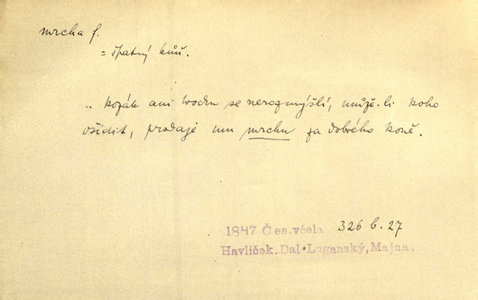 mrcha f.
= špatný kůň.
„ kozák ani trochu se nerozmýšlí, může-li koho
ošidit, prodaje mu mrchu za dobrého koně.
1847 Čes. včela 326 b. 27
Havlíček. Dal-Luganský, Majna.